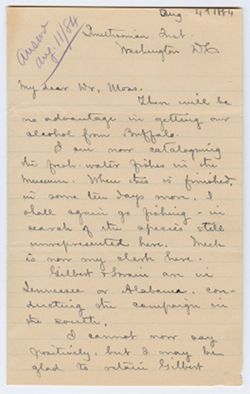 Aug 4th 1884
Answd
Aug. 11/84
Smithsonian Inst.
Washington D.C.
My Dear Dr. Moss.
There will be
no advantage in getting our
alcohol from Buffalo.
I am now cataloguing
the fresh-water fishes in the
museum. When this is finished,
in some ten days more, I
shall again go fishing - in
search of the species still
unrepresented here. Meek
is now my clerk here.
Gilbert & Swain are in
Tennessee or Alabama, con-
ducting the campaign in
the south.
I cannot now say
positively, but I may be
glad to retain Gilbert